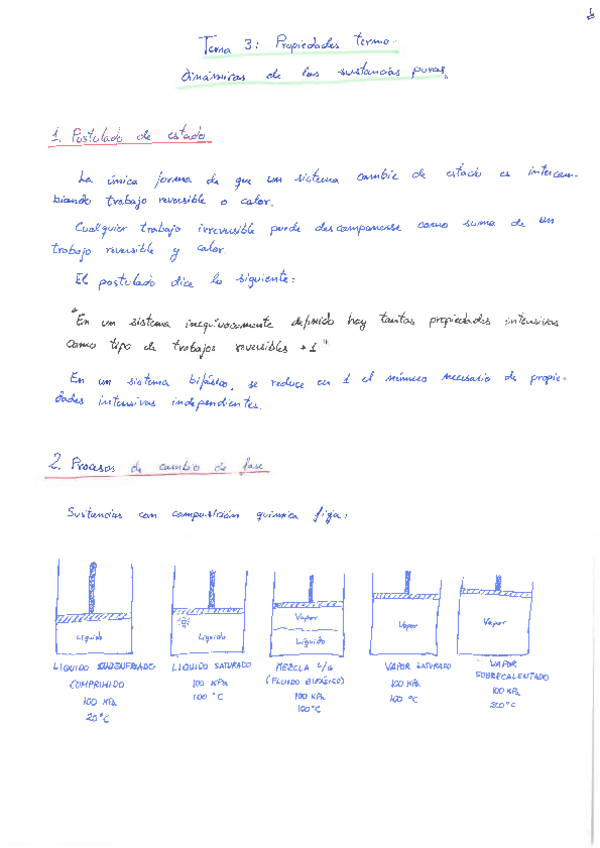 Tema 3: Propiedades termo-
dinámicas de las sustancias puras.
1. Postulado de estado
La única forma de que un sistema cambie de estado es intercam-
biando trabajo reversible o calor.
Cualquier trabajo irreversible puede descomponerse como suma de un
trabajo reversible y calor.
El postulado dice lo siguiente:
"En un sistema inequívocamente definido hay tantas propiedades intensivas
como tipo de trabajos reversibles + 1"
En un sistema bifásico, se reduce en 1 el número necesario de propie-
dades intensivas independientes.
2. Procesos de cambio de fase
Sustancias con composición química fija:
Líquido Líquido Vapor Líquido Vapor Vapor
LIQUIDO SUBENFRIADO COMPRIMIDO 100 KPa 25°C
LIQUIDO SATURADO 100 KPa 100 °C
MEZCLA L/G (FLUIDO BIFÁSICO) 100 KPa 100°C
VAPOR SATURADO 100 KPa 100 °C
VAPOR SOBRECALENTADO 100 KPa 200°C